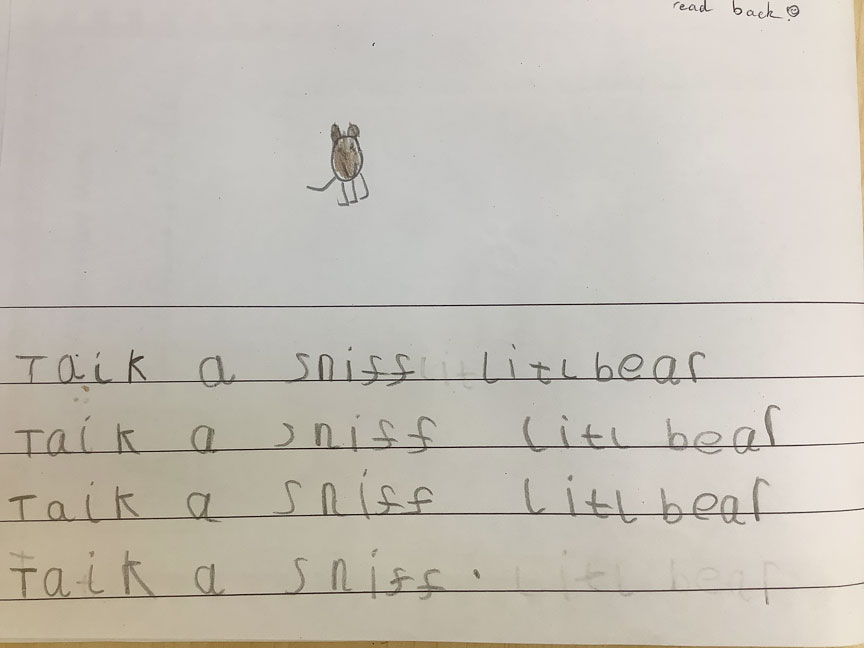 read back
Taik a sniff litl bear
Taik a sniff litl bear
Taik a sniff litl bear
Taik a sniff.